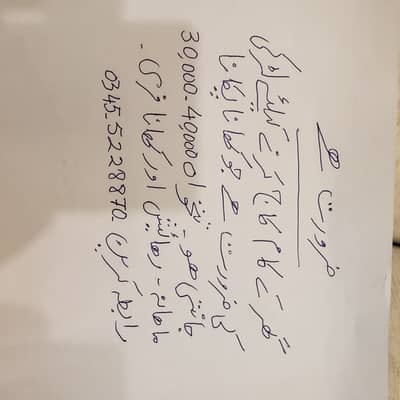 ضرورت ہے
گھر کے کام کاج کرنے کیلئے لڑکی
کی ضرورت ہے جو کھانا پکانا
جانتی ہو۔ تنخواہ 30,000-40,000
ماہانہ۔ رہائش اور کھانا فری۔
رابطہ کریں 0345-5228870